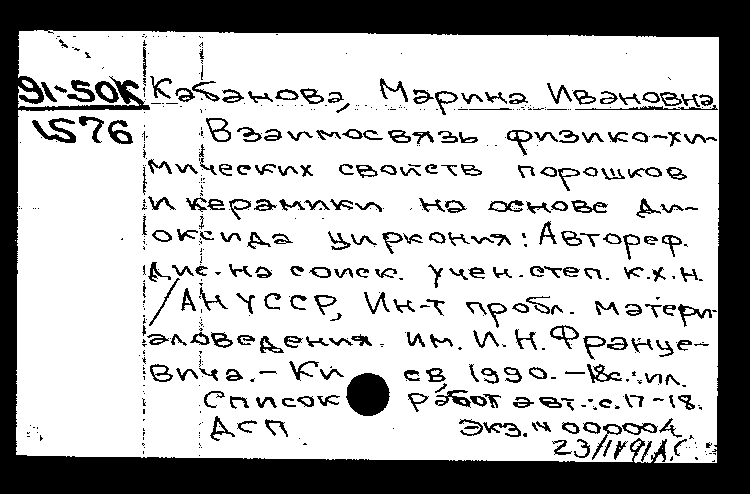 91-50К Кабанова, Марина Ивановна
1576 Взаимосвязь физико-хи-
мических свойств порошков
и керамики на основе ди-
оксида циркония: Автореф.
дис. на соиск. учен. степ. к.х.н.
/АН УССР, Ин-т пробл. матери-
аловедения им. И.Н. Франце-
вича. - Киев 1990. - 18с.: ил.
Список работ авт.: с. 17-18.
ДСП Экз. N 000004